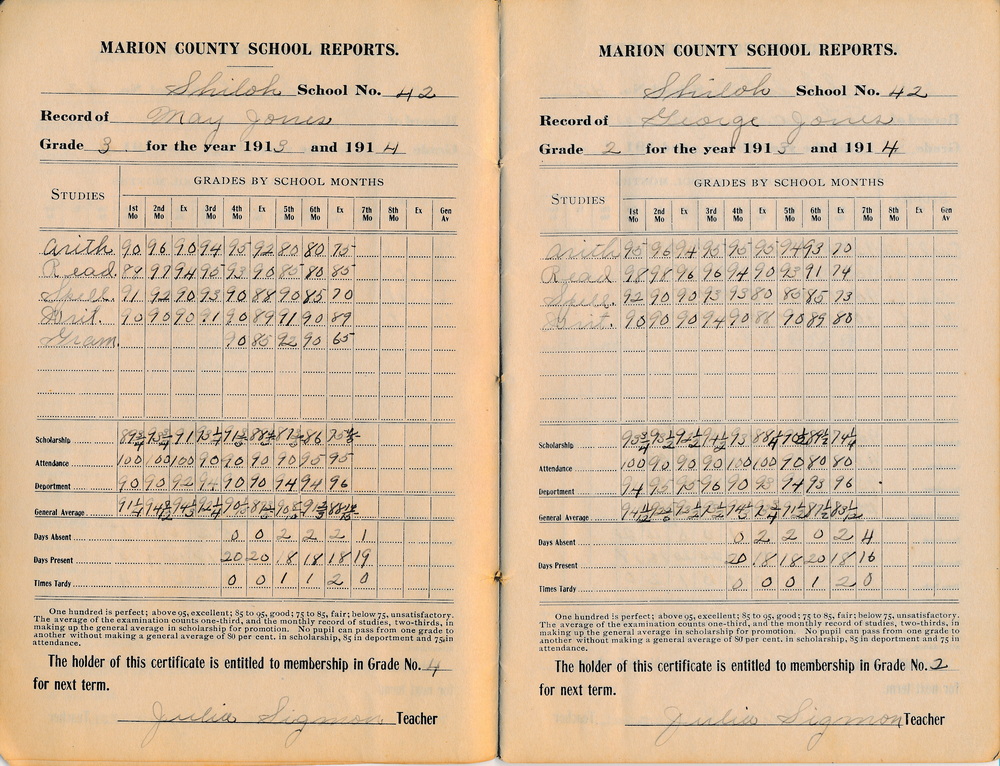 MARION COUNTY SCHOOL REPORTS.
Shiloh School No. 42
Record of May Jones
Grade 3 for the year 1913 and 1914
STUDIES
GRADES BY SCHOOL MONTHS
1st Mo 2nd Mo Ex 3rd Mo 4th Mo Ex 5th Mo 6th Mo Ex 7th Mo 8th Mo Ex Gen Av
Arith. 90 96 90 94 95 92 80 80 75
Read 89 97 94 95 93 90 85 80 85
Spell. 91 92 90 93 90 88 90 85 70
Writ. 90 90 90 91 90 89 91 90 89
Gram. 90 85 92 90 65
Scholarship 91 86
Attendance 100 100 100 90 90 90 90 95 95
Department 90 90 92 94 90 90 94 94 96
General Average
Days Absent 0 0 2 2 2 1
Days Present 20 20 18 18 18 19
Times Tardy 0 0 1 1 2 0
One hundred is perfect; above 95, excellent; 85 to 95, good; 75 to 85, fair; below 75, unsatisfactory.
The average of the examination counts one-third, and the monthly record of studies, two-thirds, in
making up the general average in scholarship for promotion. No pupil can pass from one grade to
another without making a general average of 80 per cent. in scholarship, 85 in deportment and 75 in
attendance.
The holder of this certificate is entitled to membership in Grade No. 4
for next term.
Julia Sigmon Teacher
MARION COUNTY SCHOOL REPORTS.
Shiloh School No. 42
Record of George Jones
Grade 2 for the year 1913 and 1914
STUDIES
GRADES BY SCHOOL MONTHS
1st Mo 2nd Mo Ex 3rd Mo 4th Mo Ex 5th Mo 6th Mo Ex 7th Mo 8th Mo Ex Gen Av
Arith 95 96 94 95 95 95 94 93 70
Read 98 98 96 96 94 90 93 91 74
Spell. 92 90 90 93 93 80 85 85 73
Writ. 90 90 90 94 90 88 90 89 80
Scholarship 93
Attendance 100 90 90 90 100 100 90 80 80
Department 94 95 95 96 90 93 94 93 96
General Average
Days Absent 0 2 2 0 2 4
Days Present 20 18 18 20 18 16
Times Tardy 0 0 0 1 2 0
One hundred is perfect; above 95, excellent; 85 to 95, good; 75 to 85, fair; below 75, unsatisfactory.
The average of the examination counts one-third, and the monthly record of studies, two-thirds, in
making up the general average in scholarship for promotion. No pupil can pass from one grade to
another without making a general average of 80 per cent. in scholarship, 85 in deportment and 75 in
attendance.
The holder of this certificate is entitled to membership in Grade No. 2
for next term.
Julia Sigmon Teacher